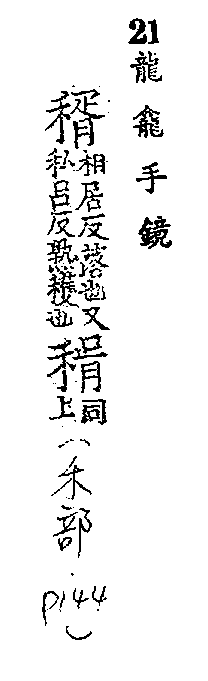 21
龍龕手鏡
稰
相居反落也又
私呂反熟穫也
同
上
(禾部
p144)